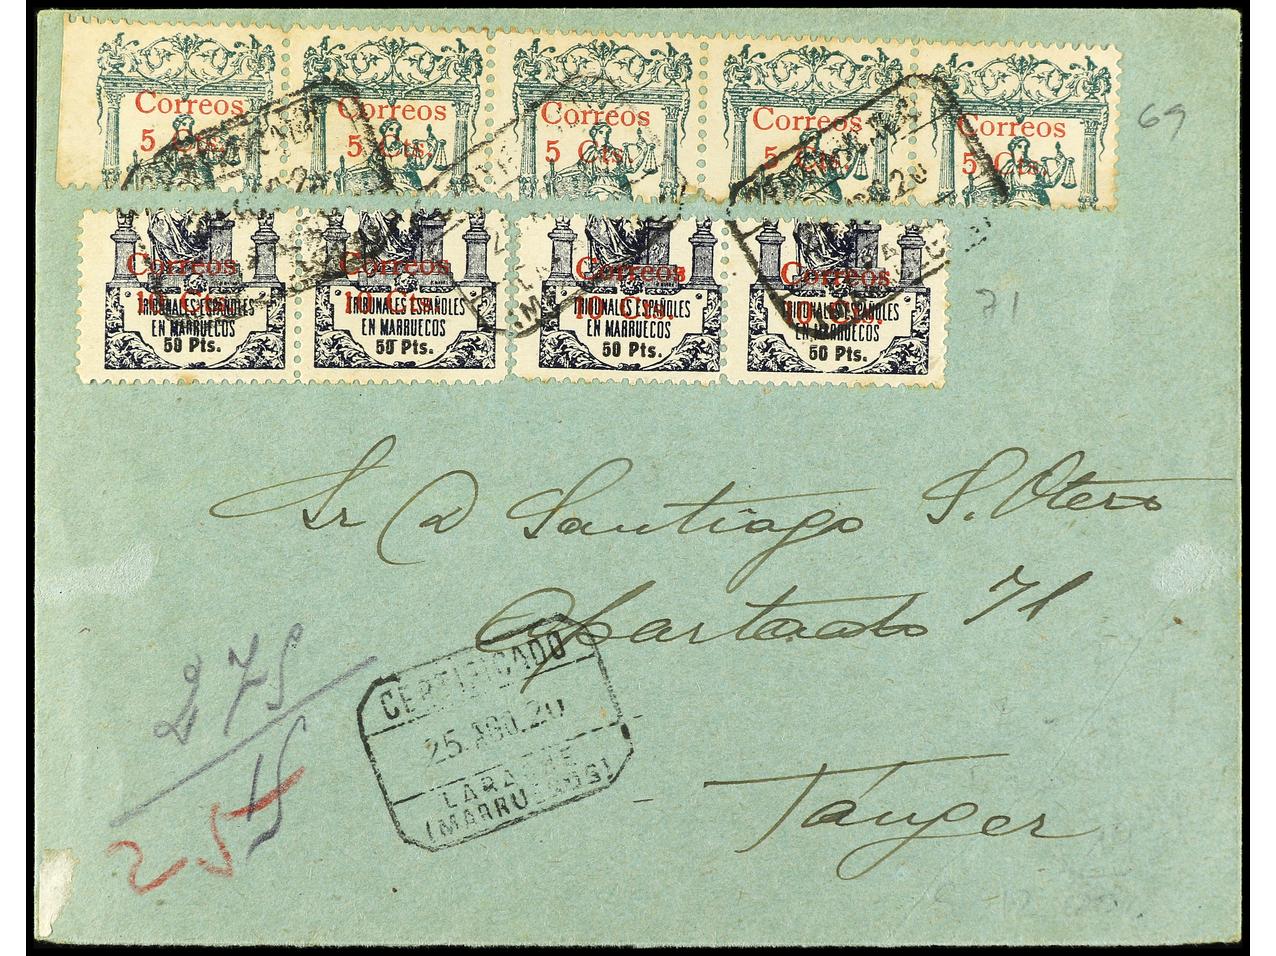 Correos Correos Correos Correos Correos
5 Cts. 5 Cts. 5 Cts. 5 Cts. 5 Cts.
69
Correos Correos Correos Correos
10 Cts. 10 Cts. 10 Cts. 10 Cts.
TRIBUNALES ESPAÑOLES TRIBUNALES ESPAÑOLES TRIBUNALES ESPAÑOLES TRIBUNALES ESPAÑOLES
EN MARRUECOS EN MARRUECOS EN MARRUECOS EN MARRUECOS
50 Pts. 50 Pts. 50 Pts. 50 Pts.
71
Sr D Santiago S. Otero
Apartado 71
Tánger
CERTIFICADO
25. AGO. 20
LARACHE
(MARRUECOS)
275
15
255